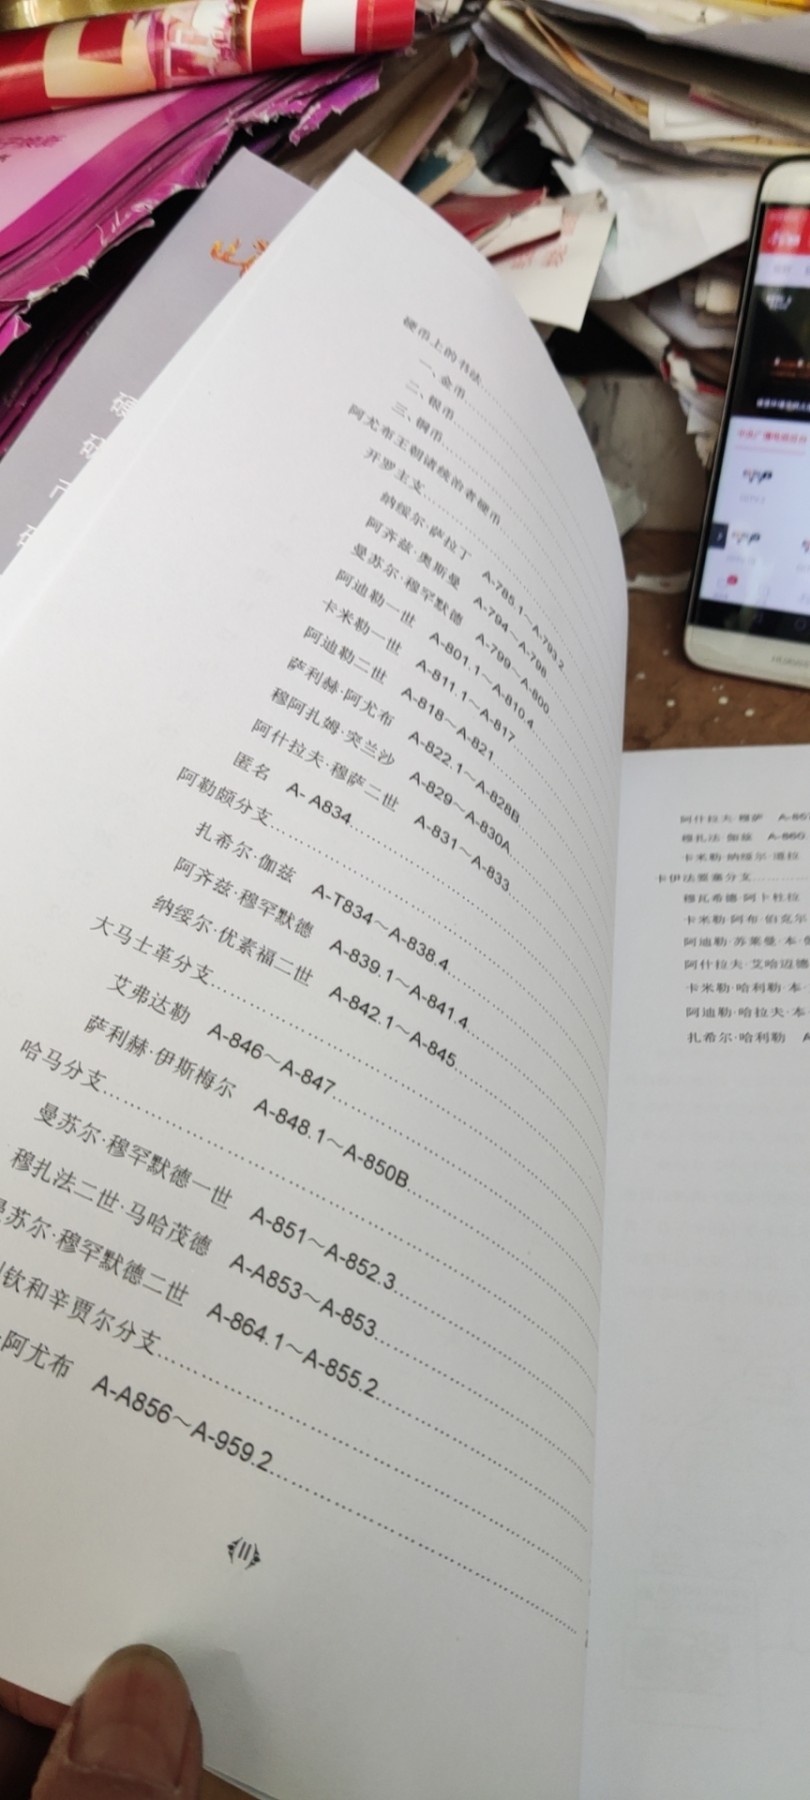 硬币上的书法
一、金币
二、银币
三、铜币
阿尤布王朝诸统治者硬币
开罗主支
纳绥尔·萨拉丁 A-785.1～A-793.2
阿齐兹·奥斯曼 A-794～A-798
曼苏尔·穆罕默德 A-799～A-800
阿迪勒一世 A-801.1～A-810.4
卡米勒一世 A-811.1～A-817
阿迪勒二世 A-818～A-821
萨利赫·阿尤布 A-822.1～A-828B
穆阿扎姆·突兰沙 A-829～A-830A
阿什拉夫·穆萨二世 A-831～A-833
匿名 A- A834
阿勒颇分支
扎希尔·伽兹 A-T834～A-838.4
阿齐兹·穆罕默德 A-839.1～A-841.4
纳绥尔·优素福二世 A-842.1～A-845
大马士革分支
艾弗达勒 A-846～A-847
萨利赫·伊斯梅尔 A-848.1～A-850B
哈马分支
曼苏尔·穆罕默德一世 A-851～A-852.3
穆扎法二世·马哈茂德 A-A853～A-853
苏尔·穆罕默德二世 A-864.1～A-855.2
钦和辛贾尔分支
阿尤布 A-A856～A-959.2
II
阿什拉夫·穆萨 A-857
穆扎法·伽兹 A-860
卡米勒·纳绥尔·道拉
卡伊法要塞分支
穆瓦希德·阿卜杜拉
卡米勒·阿布·伯克尔
阿迪勒·苏莱曼·本·
阿什拉夫·艾哈迈德
卡米勒·哈利勒·本·
阿迪勒·哈拉夫·本·
扎希尔·哈利勒 A